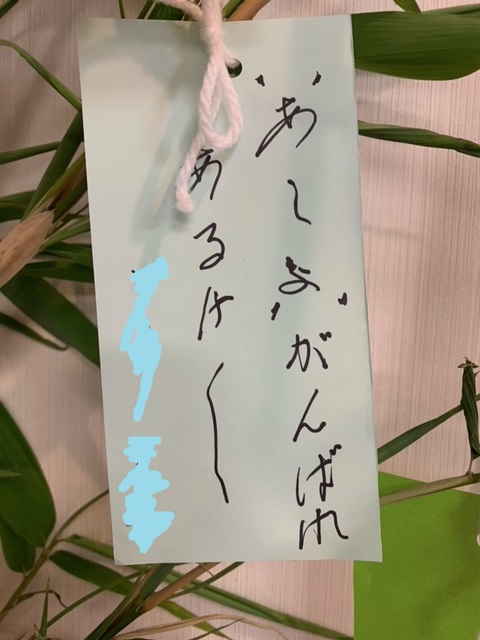 "あしよ"がんばれ
あるけ〜